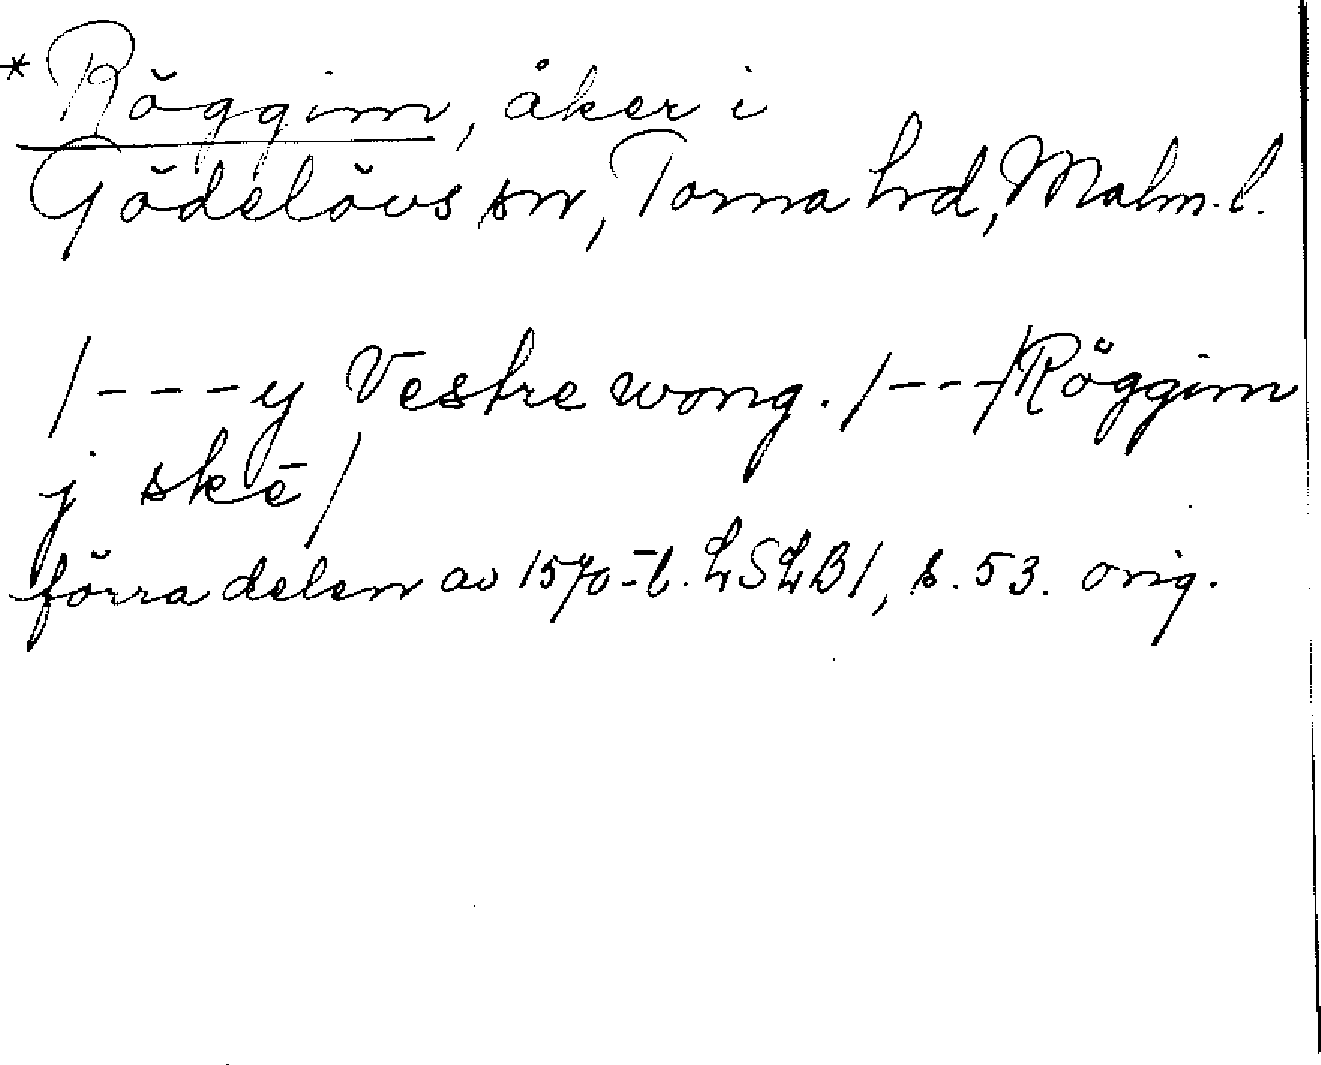 * Röggim, åker i
Gödelövs sn, Torna hrd, Malm. l.
/---y Vestre wong. /---/Röggim
j skē/
förra delen av 1570-t. LSLB1, s. 53. orig.